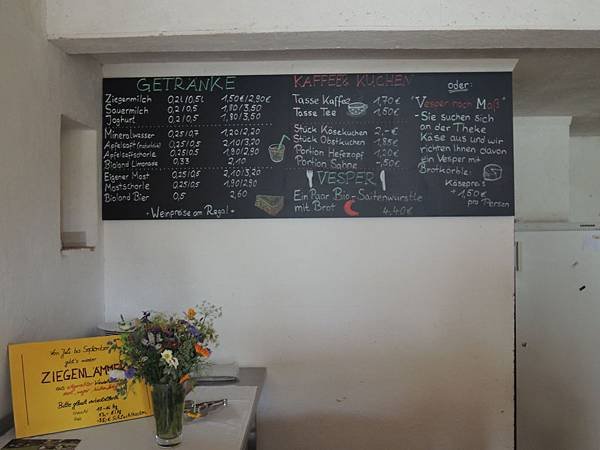 GETRÄNKE
Ziegenmilch 0,2l/0,5l 1,50€/2,90€
Sauermilch 0,2/0,5 1,80/3,50
Joghurt 0,2/0,5 1,80/3,50
Mineralwasser 0,25/0,7 1,20/2,20
Apfelsaft 0,25/0,5 2,10/3,20
Apfelsaftschorle 0,25/0,5 1,90/2,90
Bioland Limonade 0,33 2,10
Eigener Most 0,25/0,5 2,10/3,20
Mostschorle 0,25/0,5 1,90/2,90
Bioland Bier 0,5 2,60
• Weinpreise am Regal •
KAFFEE & KUCHEN
Tasse Kaffee 1,70€
Tasse Tee 1,50€
Stück Käsekuchen 2,-€
Stück Obstkuchen 1,85€
Portion Hefezopf 1,20€
Portion Sahne -,50€
VESPER
Ein Paar Bio-Saitenwürstle
mit Brot 4,40€
oder:
"Vesper nach Maß"
- Sie suchen sich
an der Theke
Käse aus und wir
richten Ihnen davon
ein Vesper mit
Brotkorb:
Käsepreis
+ 1,50€
pro Person
Von Juli bis September
gibt's wieder
ZIEGENLAMMFL
aus
Bitte